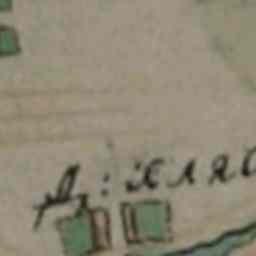 Д: хляс